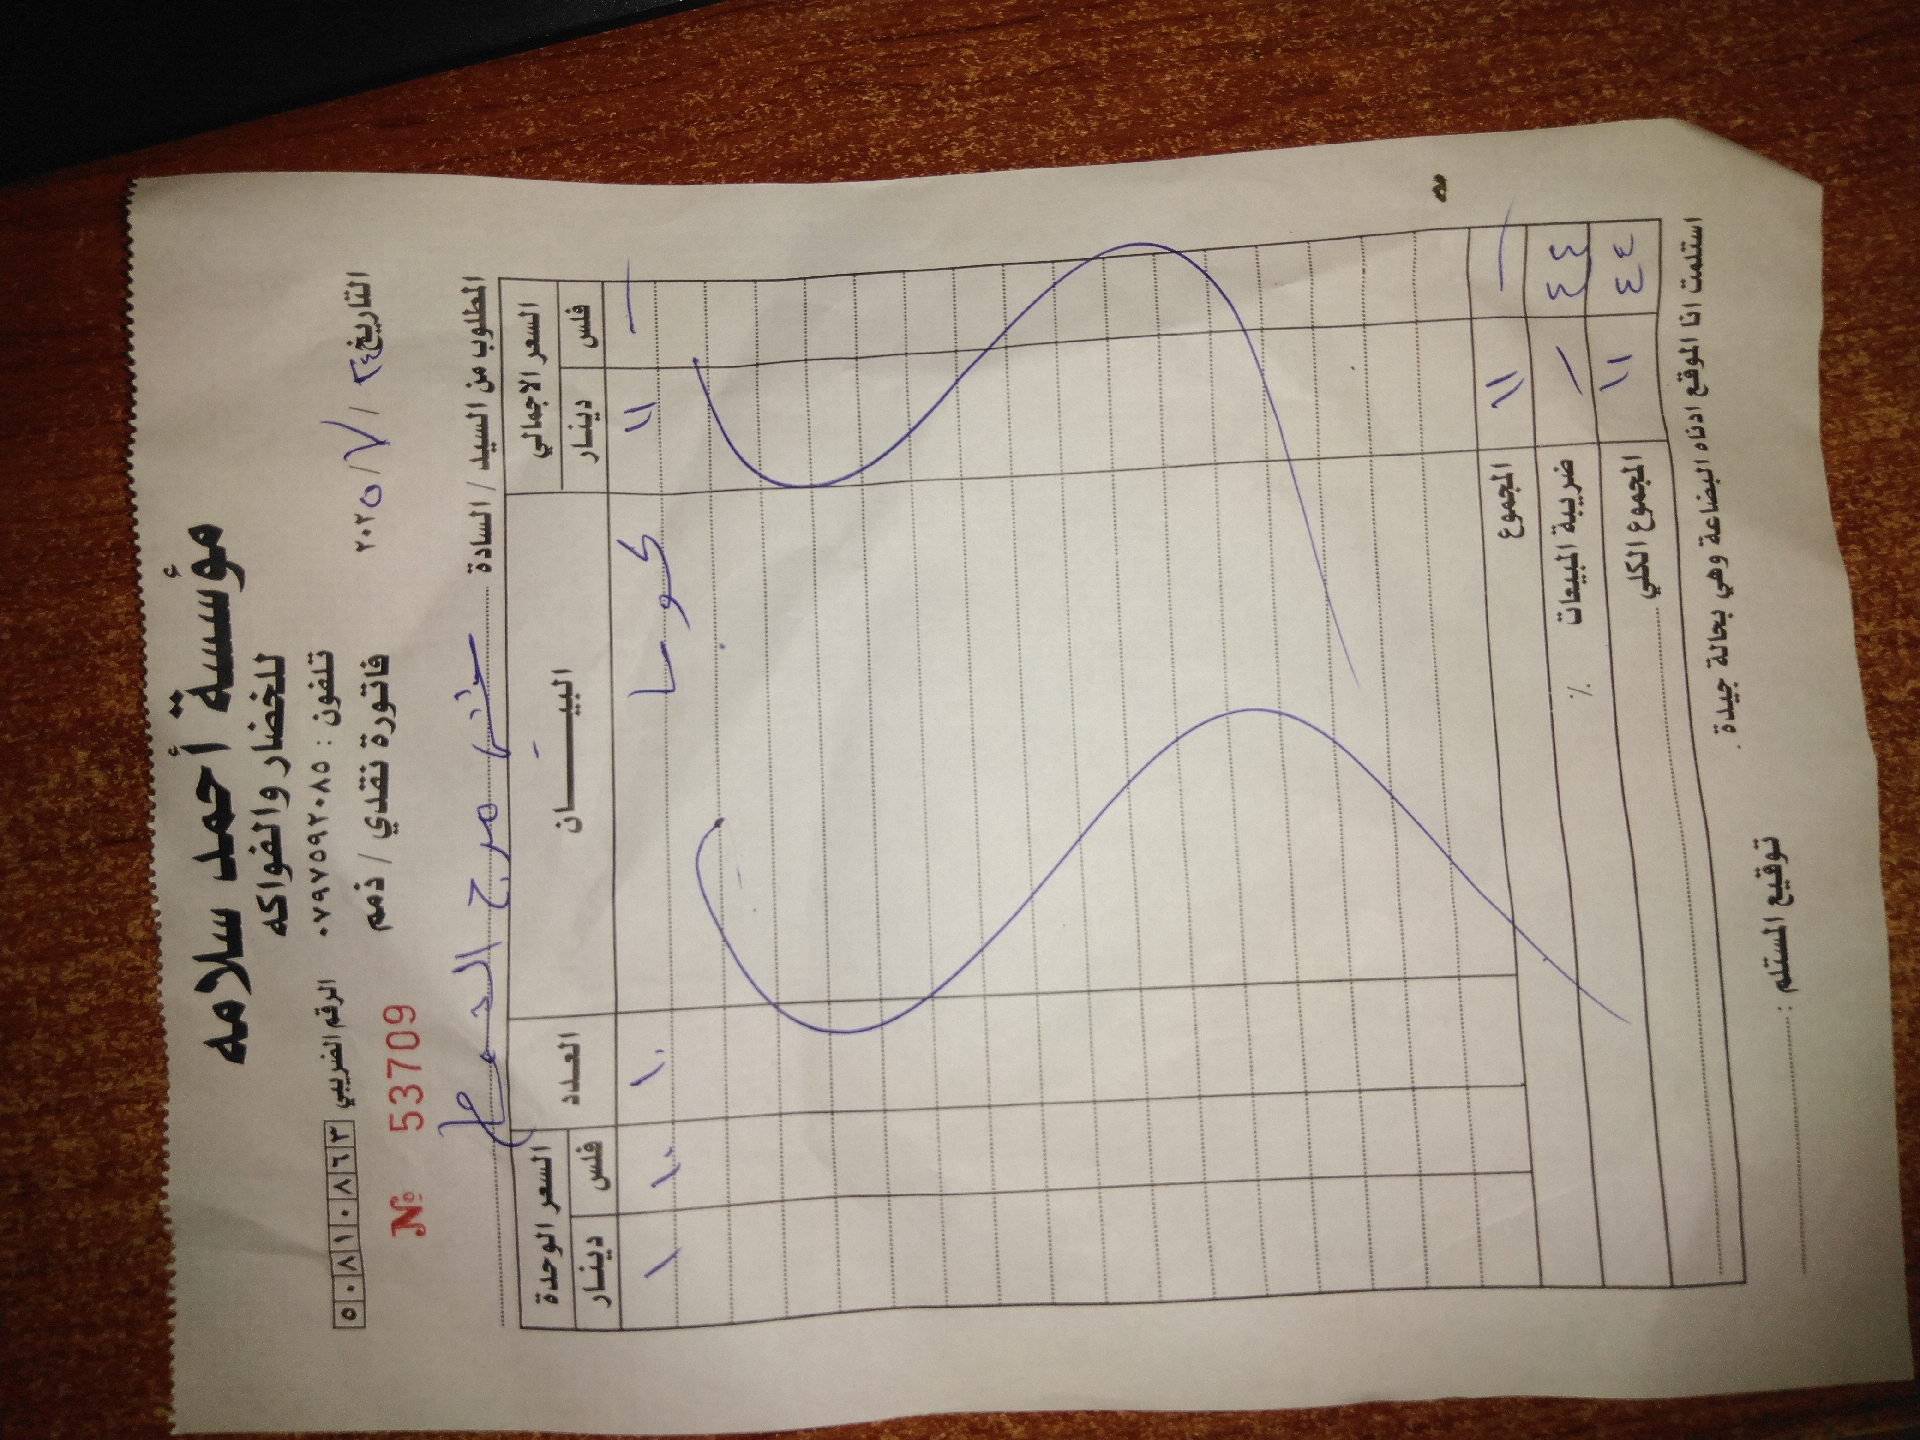 مؤسسة أحمد سلامه
للخضار والفواكه
تلفون : ٠٧٩٧٥٩٢٠٨٥
الرقم الضريبي ٥٠٨١١٠٨٦٣
التاريخ ٢٤ / ٧ / ٢٠٢٥
فاتورة نقدي / ذمم
№ 53709
المطلوب من السيد / السادة
السعر الاجمالي البيـــــان العدد السعر الوحدة
دينار فلس دينار فلس
١١ — كوسا ١٠ ١٠٠ ١
المجموع ١١ —
ضريبة المبيعات ٪ — ٤٤
المجموع الكلي ١١ ٤٤
استلمت انا الموقع ادناه البضاعة وهي بحالة جيدة .
توقيع المستلم :